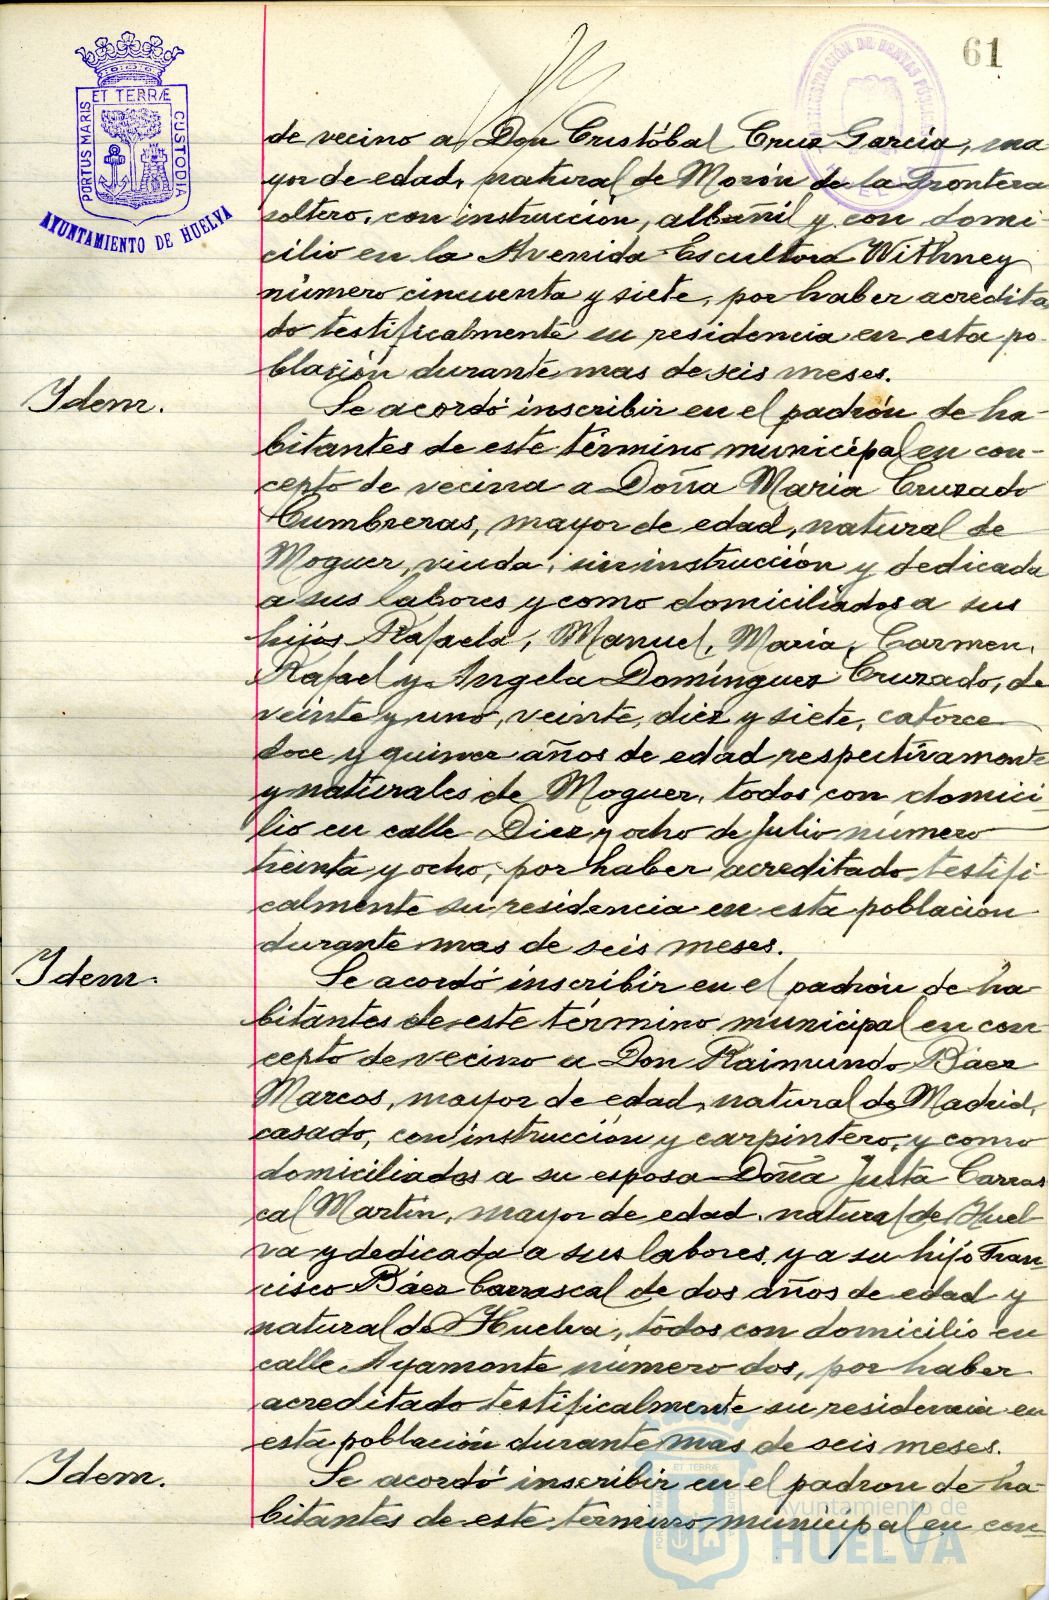 61
PORTUS MARIS ET TERRÆ CUSTODIA
AYUNTAMIENTO DE HUELVA
de vecino a Don Cristóbal Cruz Garcia, ma
yor de edad, natural de Morón de la Frontera
soltero, con instrucción, albañil y con domi-
cilio en la Avenida Escultora Withney
número cincuenta y siete, por haber acredita
do testificalmente su residencia en esta po-
blación durante mas de seis meses.
Idem.
Se acordó inscribir en el padrón de ha-
bitantes de este término municipal en con-
cepto de vecina a Doña Maria Cruzado
Cumbreras, mayor de edad, natural de
Moguer, viuda, sin instrucción y dedicada
a sus labores y como domiciliados a sus
hijos Rafaela, Manuel, Maria, Carmen,
Rafael y Angela Domínguez Cruzado, de
veinte y uno, veinte, diez y siete, catorce
doce y quince años de edad respectivamente
y naturales de Moguer, todos con domici-
lio en calle Diez y ocho de Julio número
treinta y ocho, por haber acreditado testifi
calmente su residencia en esta población
durante mas de seis meses.
Idem.
Se acordó inscribir en el padrón de ha-
bitantes de este término municipal en con
cepto de vecino a Don Raimundo Báez
Marcos, mayor de edad, natural de Madrid,
casado, con instrucción y carpintero, y como
domiciliados a su esposa Doña Justa Carras
cal Martín, mayor de edad, natural de Huel-
va y dedicada a sus labores, y a su hijo Fran-
cisco Báez Carrascal de dos años de edad y
natural de Huelva, todos con domicilio en
calle Ayamonte número dos, por haber
acreditado testificalmente su residencia en
esta población durante mas de seis meses.
Idem.
Se acordó inscribir en el padron de ha-
bitantes de este término municipal en con-
Ayuntamiento de
HUELVA